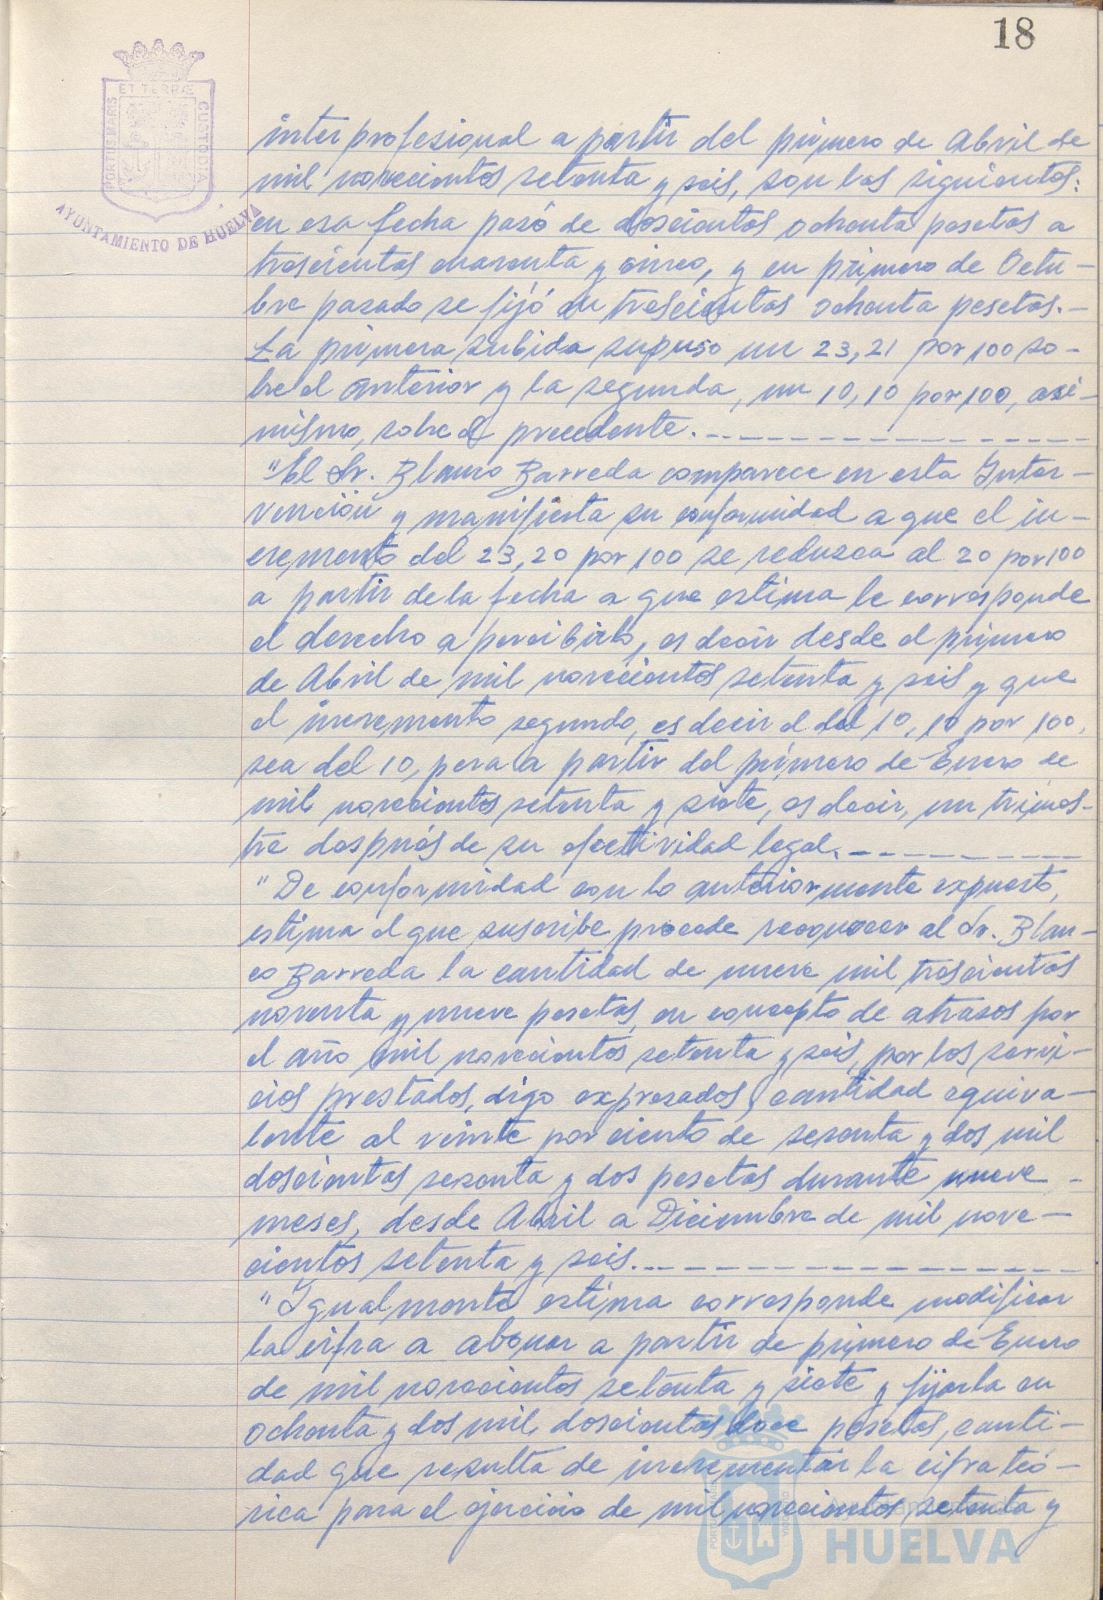 18
ET TERRÆ
PORTUS MARIS
CUSTODIA
AYUNTAMIENTO DE HUELVA
interprofesional a partir del primero de Abril de
mil novecientos setenta y seis, son las siguientes:
en esa fecha pasó de doscientas ochenta pesetas a
trescientas cuarenta y cinco, y en primero de Octu-
bre pasado se fijó en trescientas ochenta pesetas.-
La primera subida supuso un 23,21 por 100 so-
bre el anterior y la segunda, un 10,10 por 100, asi-
mismo, sobre el precedente.
"El Sr. Blanco Barreda comparece en esta Inter-
vención y manifiesta su conformidad a que el in-
cremento del 23,20 por 100 se reduzca al 20 por 100
a partir de la fecha a que estima le corresponde
el derecho a percibirlo, es decir desde el primero
de Abril de mil novecientos setenta y seis y que
el incremento segundo, es decir el del 10,10 por 100,
sea del 10, pero a partir del primero de Enero de
mil novecientos setenta y siete, es decir, un trimes-
tre después de su efectividad legal.
"De conformidad con lo anteriormente expuesto,
estima el que suscribe procede reconocer al Sr. Blan-
co Barreda la cantidad de nueve mil trescientas
noventa y nueve pesetas, en concepto de atrasos por
el año mil novecientos setenta y seis, por los servi-
cios prestados, digo expresados, cantidad equiva-
lente al veinte por ciento de sesenta y dos mil
doscientas sesenta y dos pesetas durante nueve
meses, desde Abril a Diciembre de mil nove-
cientos setenta y seis.
"Igualmente estima corresponde modificar
la cifra a abonar a partir de primero de Enero
de mil novecientos setenta y siete y fijarla en
ochenta y dos mil doscientas doce pesetas, canti-
dad que resulta de incrementar la cifra teó-
rica para el ejercicio de mil novecientos setenta y
HUELVA